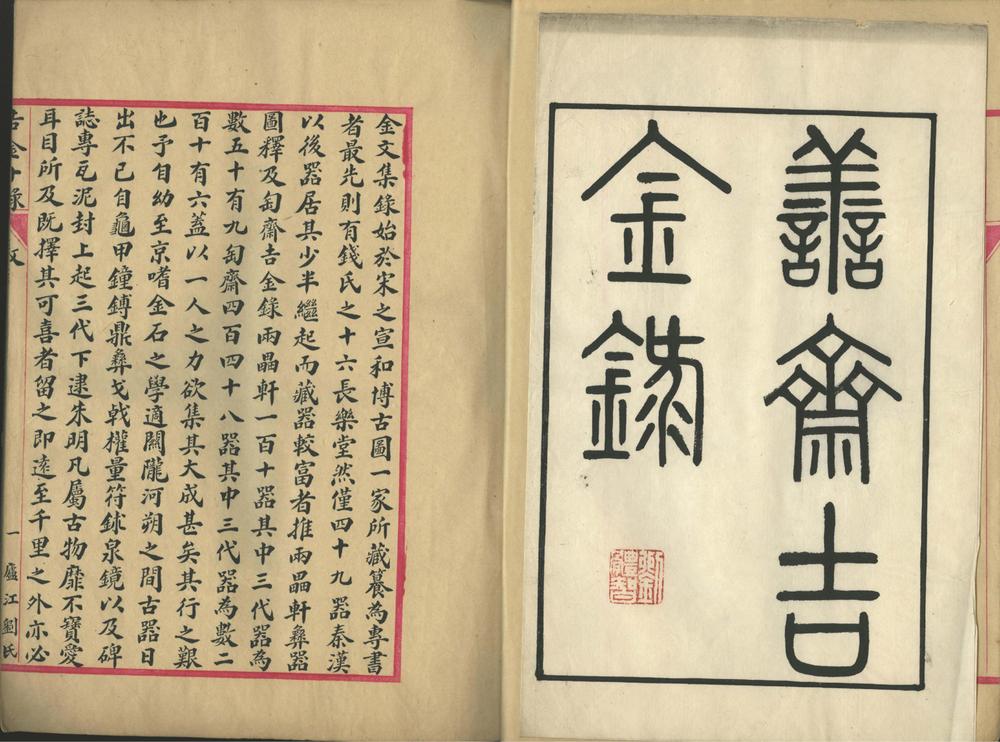 善齋吉
金錄
金文集錄始於宋之宣和博古圖一家所藏纂為專書
者最先則有錢氏之十六長樂堂然僅四十九器秦漢
以後器居其少半繼起而藏器較富者推兩罍軒彝器
圖釋及匋齋吉金錄兩罍軒一百十器其中三代器為
數五十有九匋齋四百四十八器其中三代器為數二
百十有六蓋以一人之力欲集其大成甚矣其行之艱
也予自幼至京嗜金石之學適關隴河朔之間古器日
出不已自龜甲鐘鎛鼎彝戈戟權量符鉥泉鏡以及碑
誌專瓦泥封上起三代下逮朱明凡屬古物靡不寶愛
耳目所及既擇其可喜者留之即遠至千里之外亦必
一 廬江劉氏